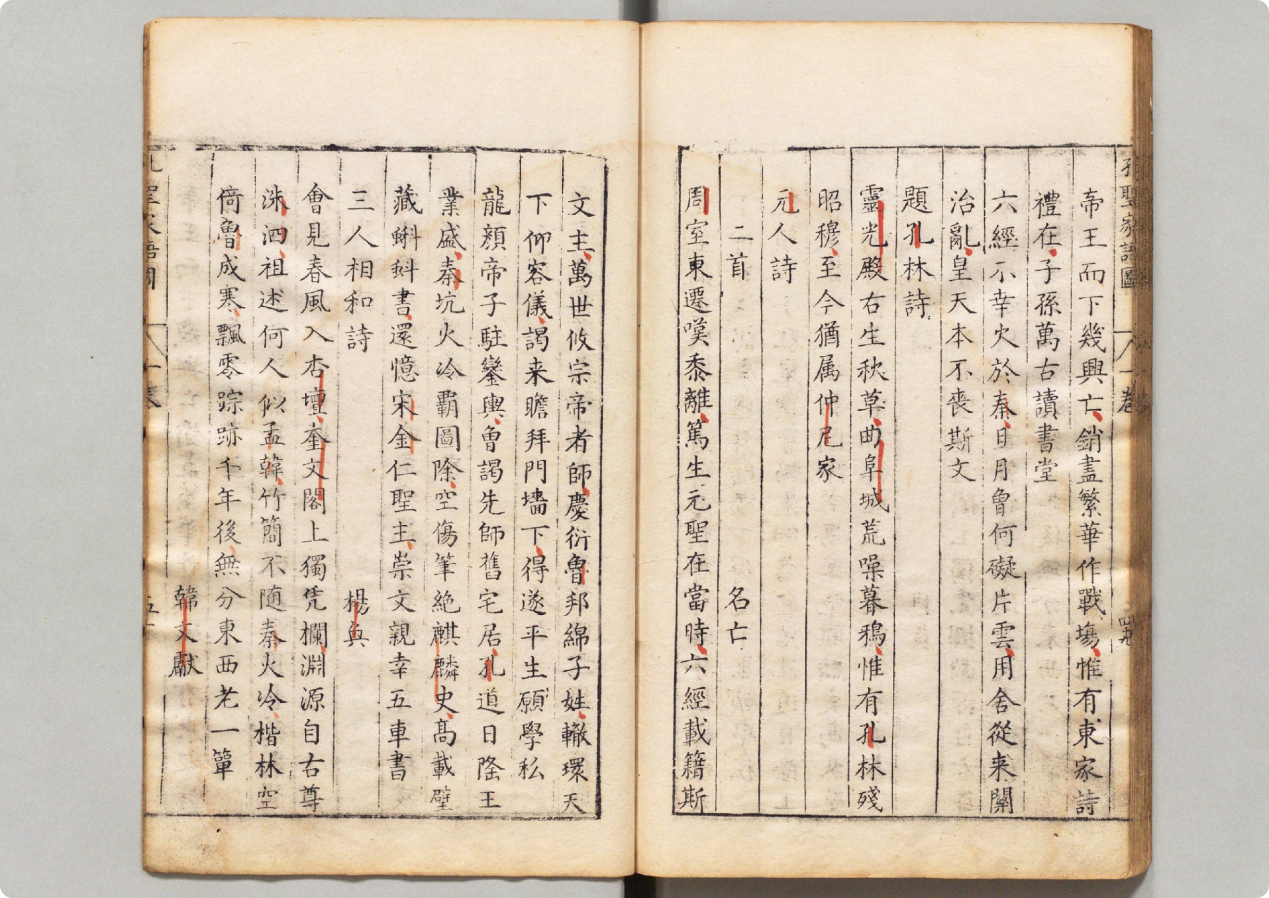 孔聖家語圖 八一卷 四
帝王而下幾興亡銷盡繁華作戰塲惟有東家詩
禮在子孫萬古讀書堂
六經不幸火於秦日月魯何礙片雲用舍從来關
治亂皇天本不喪斯文
題孔林詩
靈光殿右生秋草曲阜城荒噪暮鴉惟有孔林殘
昭穆至今猶属仲尼家
元人詩
二首 名亡
周室東遷嘆黍離篤生元聖在當時六經載籍斯
文主萬世攸宗帝者師慶衍魯邦綿子姓轍環天
下仰容儀謁来瞻拜門墻下得遂平生願學私
龍顔帝子駐鑾輿魯謁先師舊宅居孔道日隆王
業盛秦坑火冷覇圖除空傷筆絶麒麟史髙載壁
藏蝌蚪書還憶宋金仁聖主崇文親幸五車書
三人相和詩 楊奐
會見春風入杏壇奎文閣上獨凭欄淵源自古尊
洙泗祖述何人似孟韓竹簡不随秦火冷楷林空
倚魯成寒飄零踪跡千年後無分東西老一簞
韓文獻
孔聖家語圖 一卷 五